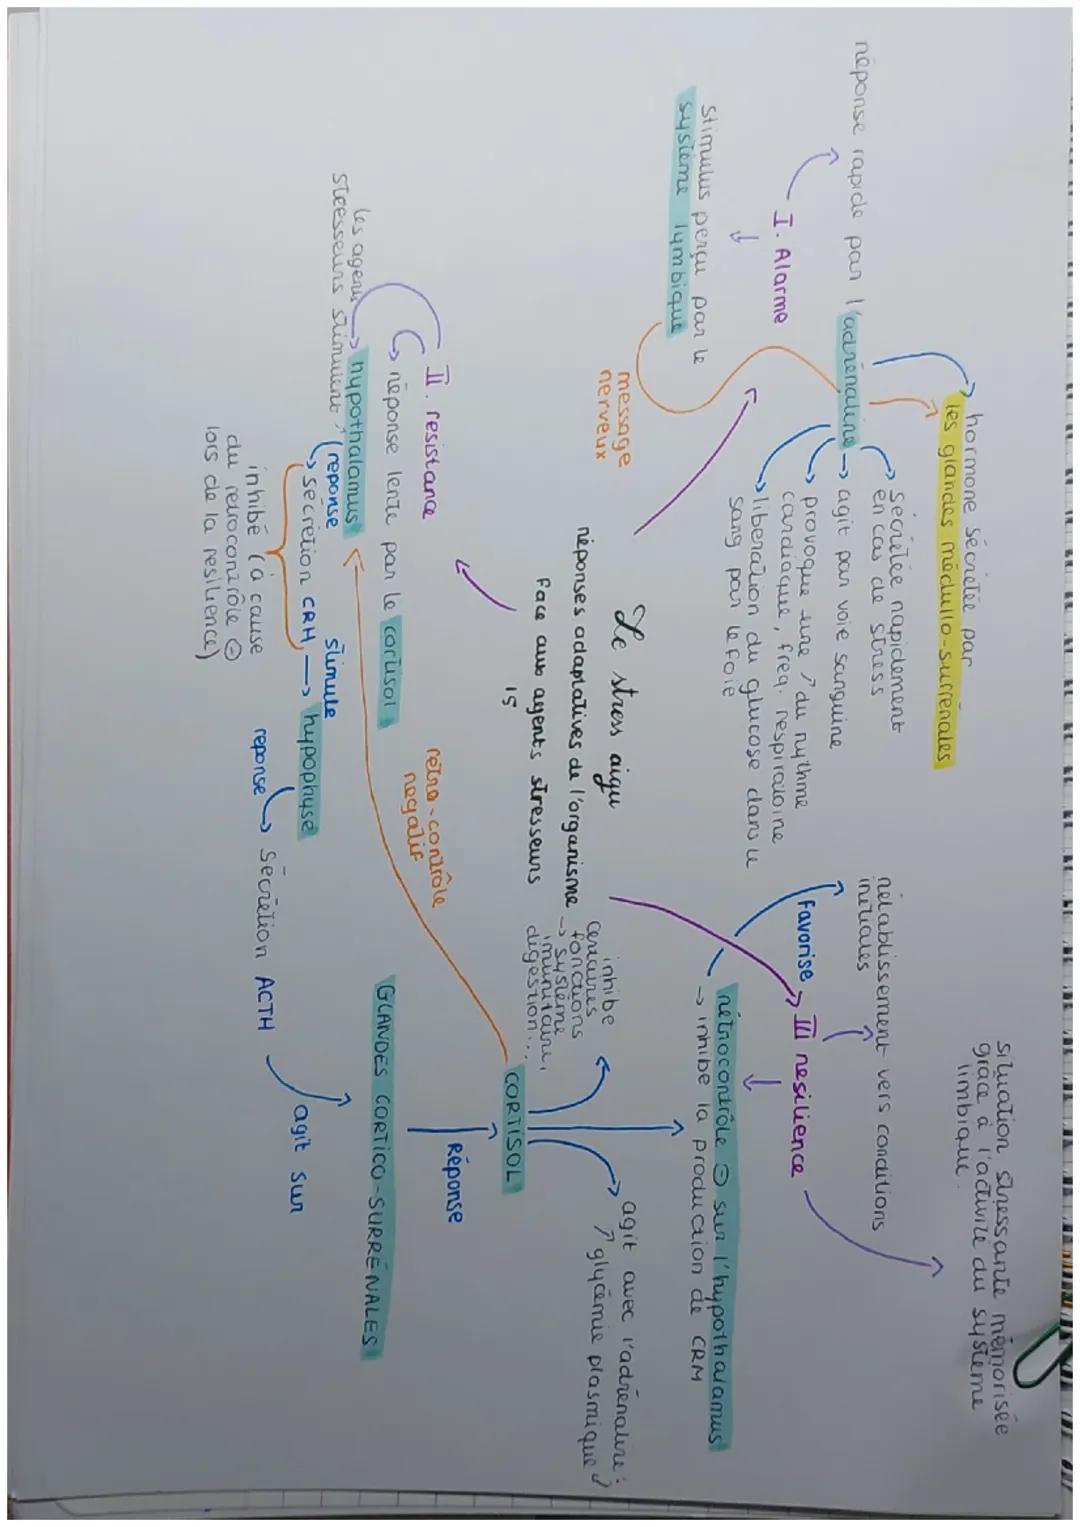 Le stress aigu
réponses adaptatives de l'organisme
Face aux agents stresseurs
15
I. Alarme
réponse rapide par l'adrénaline
hormone sécrétée par
les glandes médullo-surrénales
sécrétée rapidement
en cas de stress
agit par voie sanguine
provoque une ↗ du rythme
cardiaque, freq. respiratoire
libération du glucose dans le
sang par le foie
Stimulus perçu par le
système lymbique
message
nerveux
II. resistance
réponse lente par le cortisol
les agents
stresseurs stimulent
hypothalamus
reponse
sécrétion CRH
stimule
hypophyse
inhibé (à cause
du retrocontrôle ⊖
lors de la resilience)
reponse
Sécrétion ACTH
agit sur
GLANDES CORTICO-SURRÉNALES
Réponse
CORTISOL
retro-contrôle
negatif
inhibe
certaines
fonctions
→ système
immunitaire,
digestion...
agit avec l'adrénaline:
↗ glycémie plasmique
III resilience
rétrocontrôle ⊖ sur l'hypothalamus
→ inhibe la production de CRM
Favorise
retablissement vers conditions
initiales
situation stressante mémorisée
grâce à l'activité du système
limbique.